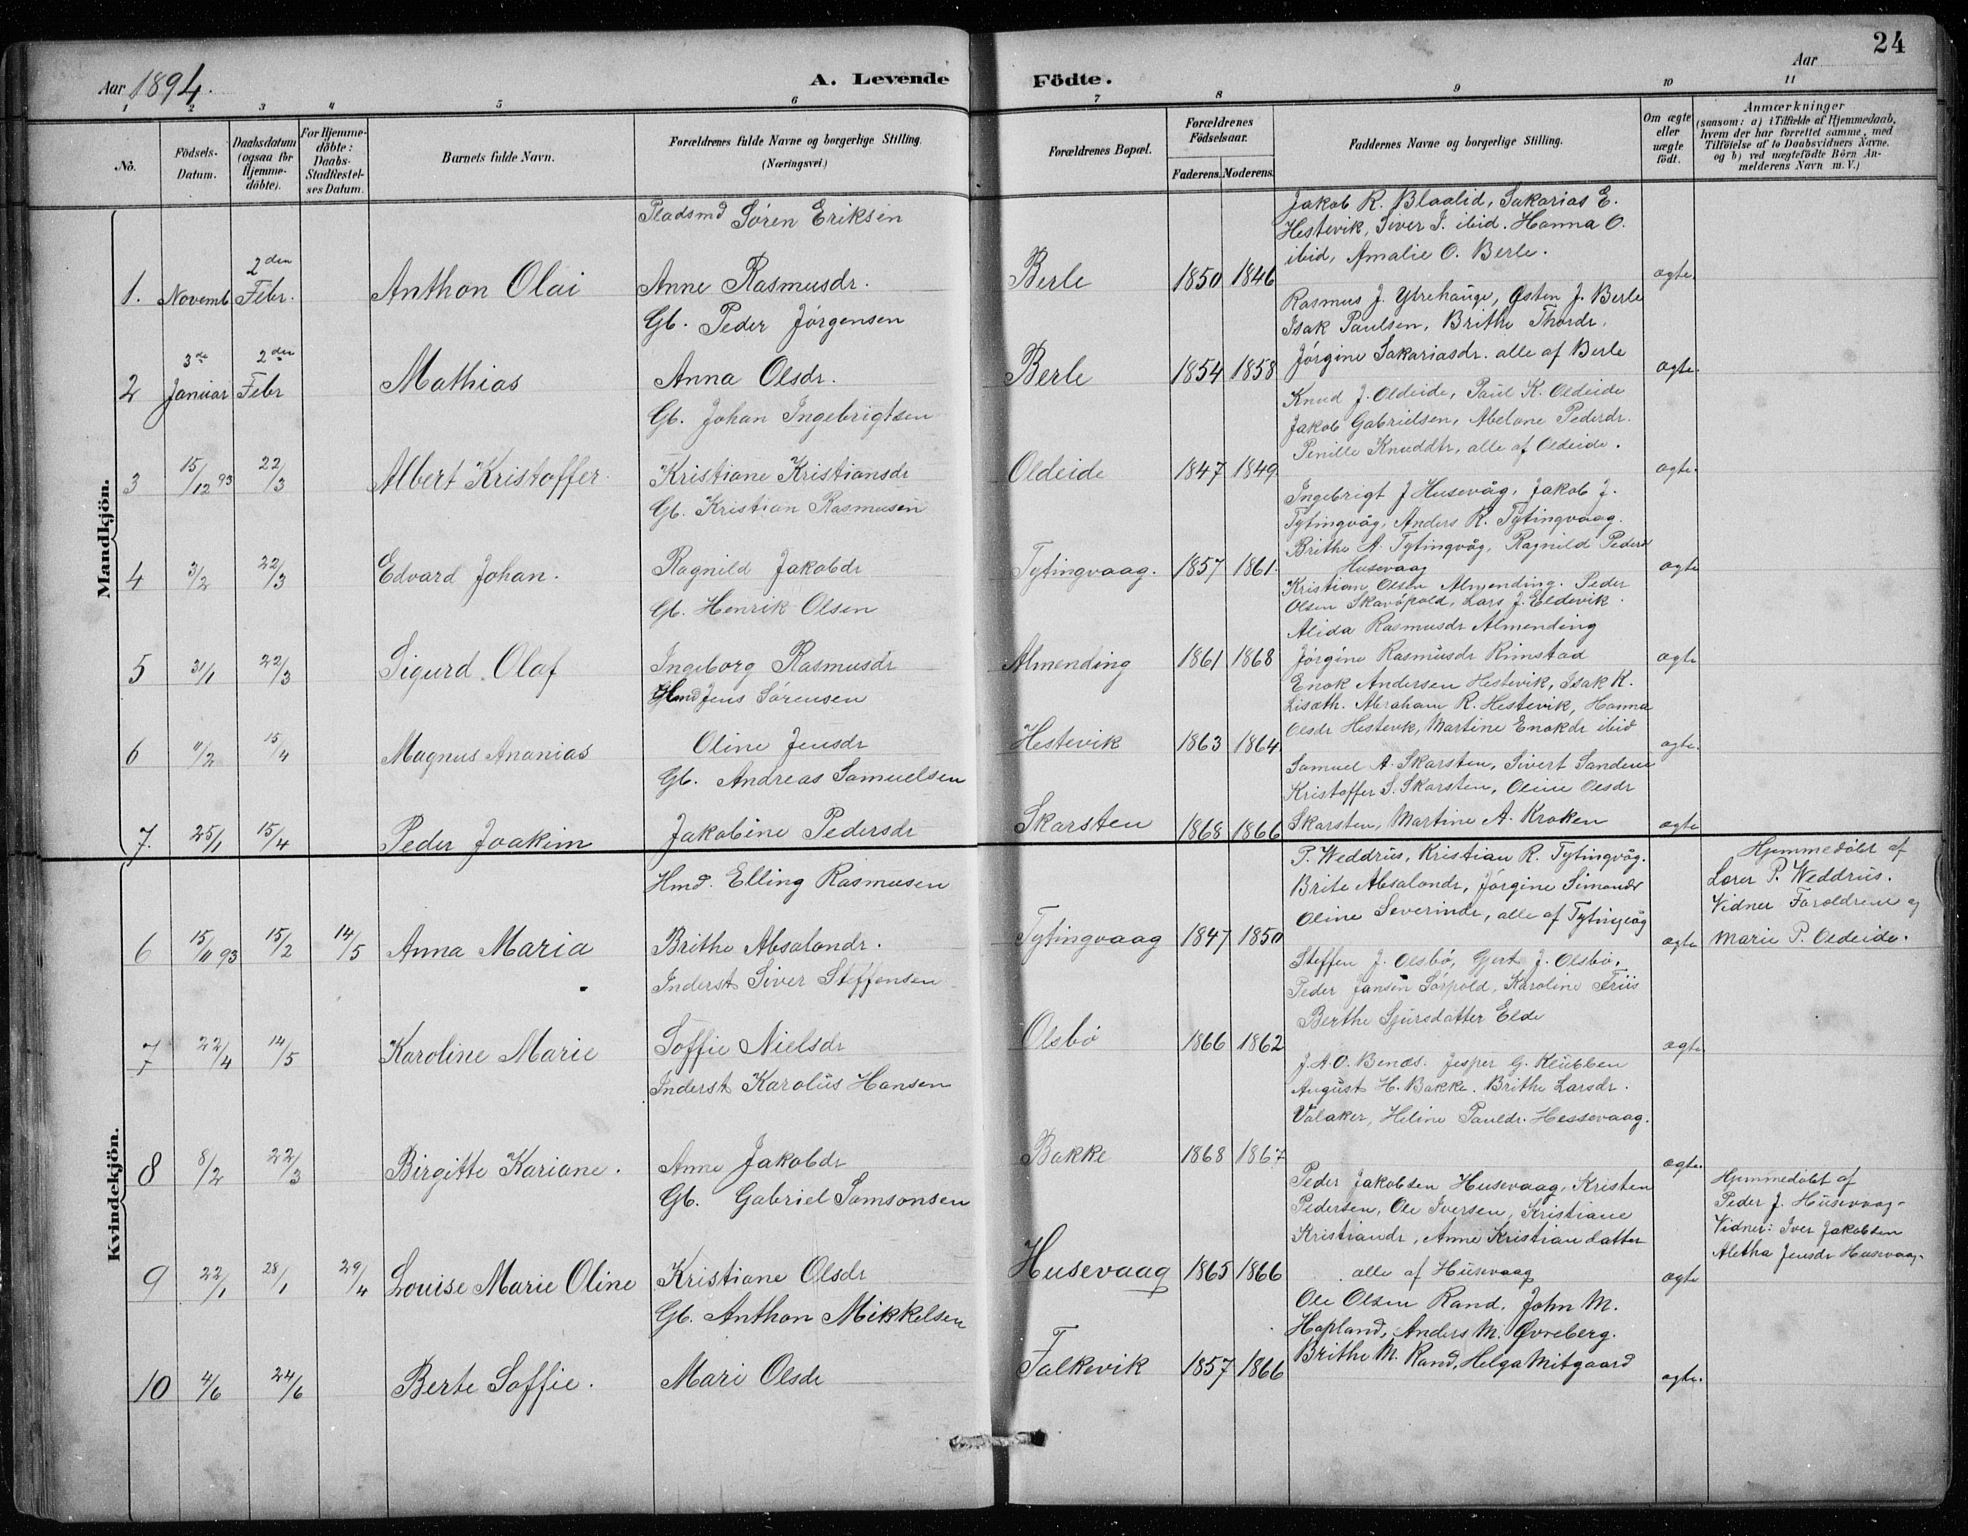 24
Aar 1894. A. Levende Födte. Aar
1 2 3 4 5 6 7 8 9 10 11
No.
Födsels-
Datum.
Daabsdatum
(ogsaa for
Hjemme-
döbte).
For Hjemme-
döbte:
Daabs-
Stadfestel-
ses Datum.
Barnets fulde Navn.
Forældrenes fulde Navne og borgerlige Stilling.
(Næringsvei.)
Forældrenes Bopæl.
Forældrenes
Födselsaar.
Faderens. Moderens.
Faddernes Navne og borgerlige Stilling.
Om ægte
eller
uægte
födt.
Anmærkninger
(saasom: a) i Tilfælde af Hjemmedaab,
hvem der har forrettet samme, med
Tilföielse af to Daabsvidners Navne,
og b) ved uægtefödte Börn An-
melderens Navn m. V.)
Mandkjön.
Pladsmd Sören Eriksen
1. Novemb 2den Febr. Anthon Olai Anne Rasmusdr. Berle 1850 1846 ægte.
Jakob R. Blaalid, Sakarias E.
Hestevik, Siver J. ibid. Hanna O.
ibid, Amalie O. Berle.
Gb. Peder Jörgensen
2 3de Januar 2den Febr Mathias Anna Olsdr. Berle 1854 1858 ægte.
Rasmus J. Ytrehauge, Østen J. Berle
Isak Paulsen, Brithe Thordr.
Jörgine Sakariasdr. alle af Berle
Gb. Johan Ingebrigtsen
3 15/12 93 22/3 Albert Kristoffer. Kristiane Kristiansdr Oldeide 1847 1849. ægte.
Knud J. Oldeide, Paul K. Oldeide
Jakob Gabrielsen, Abelone Pedersdr.
Penille Knuddtr, alle af Oldeide.
Gb. Kristian Rasmusen
4 3/2 22/3 Edvard Johan. Ragnild Jakobdr Tytingvaag. 1857 1861. ægte
Ingebrigt J Husevåg, Jakob J.
Tytingvåg, Anders R. Tytingvaag.
Brithe A. Tytingvåg, Ragnild Pedersd
Husevaag
Gb. Henrik Olsen
5 31/1 22/3 Sigurd Olaf Ingeborg Rasmusdr Almending 1861 1868 ægte
Kristian Olsen Almending. Peder
Olsen Skavöpold, Lars J. Eldevik.
Alida Rasmusdr Almending
Jörgine Rasmusdr Rimstad
Hmd Jens Sörensen
6 11/2 15/4 Magnus Ananias Oline Jensdr Hestevik 1863 1864. ægte.
Enok Andersen Hestevik, Isak K.
Lisæth. Abraham R. Hestevik, Hanna
Olsdr Hestevik, Martine Enokdr ibid
Gb. Andreas Samuelsen
7. 25/1 15/4 Peder Joakim Jakobine Pedersdr Skarsten 1868 1866 ægte
Samuel A. Skarsten, Sivert Sandene
Kristoffer S. Skarsten, Oline Olsdr
Skarsten, Martine A. Kroken
Kvindekjön.
Hmd. Elling Rasmusen
6 15/11 93 15/2 14/5 Anna Maria Brithe Absalondr. Tytingvaag 1847 1850 ægte
P. Weddrus, Kristian R. Tytingvåg.
Brite Absalondr, Jörgine Simondr
Oline Severindr, alle af Tytingvåg
Hjemmedöbt af
Lærer P. Weddrus.
Vidner Foræeldrene og
Marie P. Oldeide.
Inderst Siver Steffensen
7 22/4 14/5 Karoline Marie Soffie Nielsdr Olsbö 1866 1862 ægte.
Steffen J. Olsbö, Gjert J. Olsbö,
Peder Jansen Sörpold, Karoline Friis
Berthe Sjursdatter Elde
Inderst Karolus Hansen
8 8/2 22/3 Birgitte Kariane. Anne Jakobdr Bakke 1868 1867 ægte.
J.A.O. Benæs. Jesper G. Klubben
August H. Bakke. Brithe Larsdr.
Valaker, Heline Pauldr. Hessevaag.
Gb. Gabriel Samsonsen
9 22/1 28/1 29/4 Louise Marie Oline Kristiane Olsdr Husevaag 1865 1866 ægte
Peder Jakobsen Husevaag, Kristen
Pedersen, Ole Iversen, Kristiane
Kristiandr, Anne Kristiandatter
alle af Husevaag
Hjemmedöbt af
Peder J. Husevaag.
Vidner: Iver Jakobsen
Aletha Jensdr Husevaag.
Gb. Anthon Mikkelsen
10 4/6 24/6 Berte Soffie. Mari Olsdr Falkevik 1857 1866 ægte.
Ole Olsen Rand, John M.
Hopland, Anders M. Øvreberg.
Brithe M. Rand, Helga Mitgaard